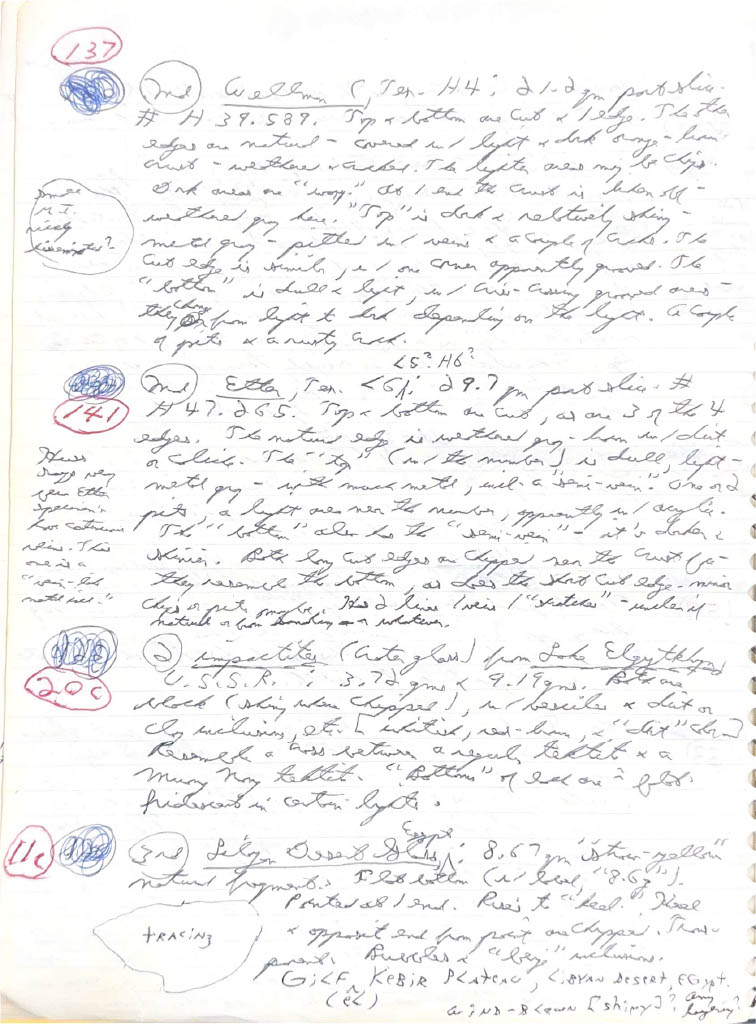 137
2nd Wellman (, Tex. H4; 21.2 gm part slice.
# H 39.589. Top & bottom are cut & 1 edge. The other
edges are natural - covered w/ light & dark orange-brown
crust - weathered & cracked. The lighter areas may be chips.
Dark areas are "waxy." At 1 end the crust is broken off -
weathered gray here. "Top" is dark & relatively shiny -
metal gray - pitted w/ veins & a couple of cracks. The
cut edge is similar, w/ one corner apparently ground. The
"bottom" is dull & light, w/ criss-crossing grooved areas -
they change from light to dark depending on the light. A couple
of pits & a rusty crack.
M.I.
nicely
L5? H6?
2nd Etter, Tex. L5; 29.7 gm part slice. #
141
H 47.265. Top & bottom are cut, as are 3 of the 4
edges. The natural edge is weathered gray-brown w/ dirt
or caliche. The "top" (w/ the number) is dull, light-
metal gray - with much metal, incl. a "semi-vein". One or 2
pits, a light area near the number, apparently w/ acrylic.
The "bottom" also has the "semi-vein" - it's darker &
shinier. Both long cut edges are chipped near the crust
they resemble the bottom, as does the short cut edge - minor
chips or pits, maybe. Has 2 lines / veins / "scratches" - unclear if
natural or from sanding or whatever.
Huss
says very
few Etter
specimens
have continuous
veins. This
one is a
"vein-like
metal
2 impactites (crater glass) from Lake Elgytkhyn
20c
U.S.S.R.: 3.72 gms & 9.19 gms. Both are
black (shiny when chipped), w/ vesicles & dirt or
clay inclusions, etc. [whitish, red-brown, & "dirt" color]
Resemble a cross between a regular tektite & a
Muong Nong tektite. "Bottoms" of each are flat.
Iridescent in certain lights.
11c
Egypt
3rd Libyan Desert Glass; 8.67 gm "straw-yellow"
natural fragment. Flat bottom (w/ label, "8.6g").
Pointed at 1 end. Rises to "keel." Keel
& opposite end from point are chipped. Trans-
parent. Bubbles & "beige" inclusions.
TRACING
GILF KEBIR PLATEAU, LIBYAN DESERT, EGYPT.
(ĕL)
WIND-BLOWN [SHINY]? any layering?